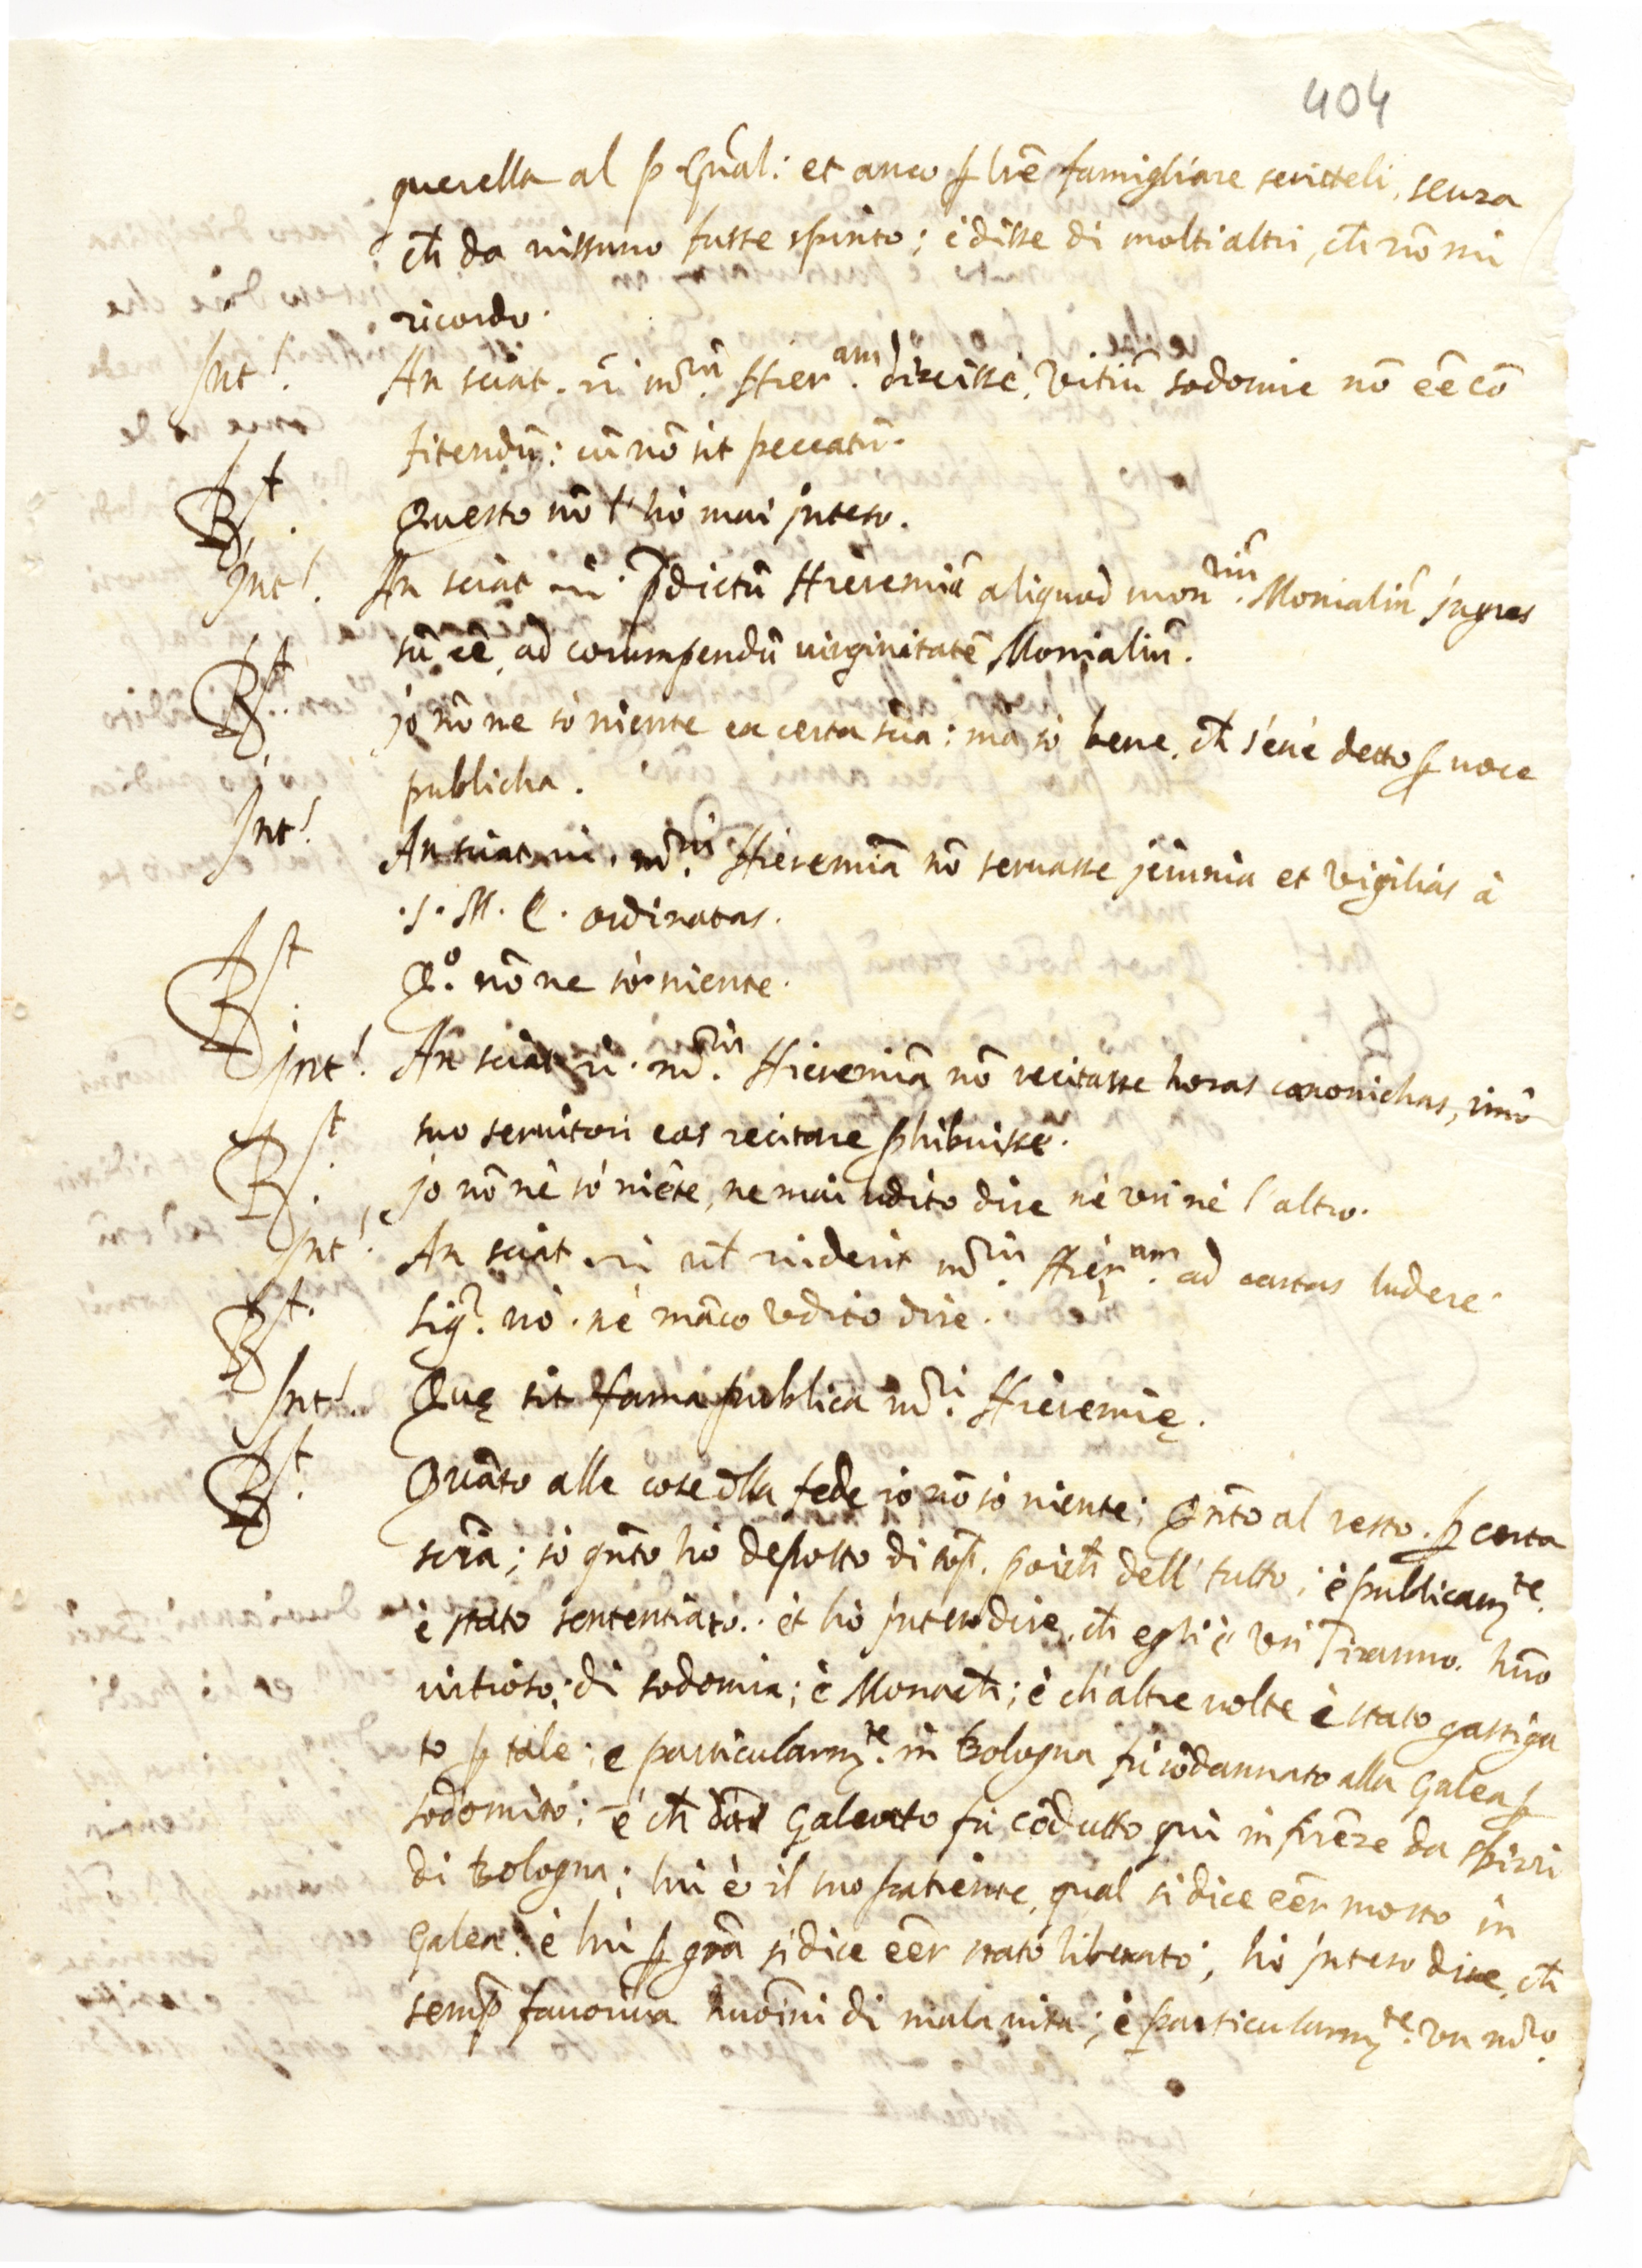 404
querella al p. Gn̄al: et anco ꝑ lr̄e famigliare scritteli, senza
ch̄ da nissuno fusse spinto; è disse di molti altri, ch̄ nō mi
ricordo.
Int.! An sciat. mr̄m. Hier.am dixisse, Vitiū sodomie nō eē cō
fitendū: cū nō sit peccatū.
Rst. Questo nō l'hò mai inteso.
Int.! An sciat p̄dictū Hieremiā aliquod mon.riū Monialiū ingres
sū eē, ad corumpendū uirginitatē Monialiū.
Rst. io nō ne sò niente ex certa scīa: mà sò bene, ch̄ s'ene detto ꝑ uoce
publicha.
Int.! An sciat mr̄m. Hieremiā nō seruasse jeiunia et vigilias à
.S. M. E. ordinatas.
Rst. Q.o nō ne sò niente.
Int.! An sciat mr̄m. Hieremiā nō recitasse horas canonichas, imō
suo seruitori eas recitare ꝓhibuisse.
Rst. io nō nè sò niēte, ne mai udito dire nè vn nè l'altro.
Int.! An sciat ul̄ uiderit mr̄m. Hier.am ad cartas ludere.
Rst. Sig.r nò. nè māco Vdito dire.
Int.! Quę sit fama publica mr̄i. Hieremię.
Rst. Quāto alle cose d̄lla fede io nō sò niente; Qn̄to al resto. ꝑ certa
scīa; sò qn̄to hò deposto di sop̄. poich̄ dell' tutto; è publicam.te
è stato sententiato. et hò inteso dire, ch̄ egli è vn Tiranno. huō
uitioso; di sodomia; è Monach̄; è ch̄ altre uolte è stato gastiga
to ꝑ tale; e particularm.te in Bologna fù cōdannato alla Galea ꝑ
sodomito; è ch̄ Galeotto fù cōdutto quì in firēze da sbirri
di Bologna; lui è il suo patiente, qual si dice eēr morto in
Galea. è lui ꝑ gr̄a si dice eēr stato liberato; hò inteso dire, ch̄
semp̄ fauoriua huoīni di mala uita; è particularm.te vn mr̄o.